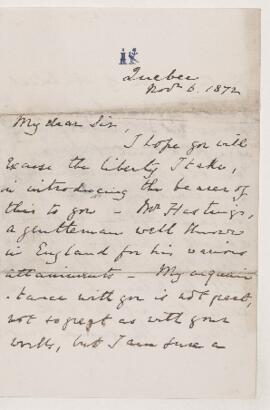 Quebec
Novr 6. 1872
My dear Sir,
I hope you will
excuse the liberty I take,
in introducing the bearer of
this to you – Mr Hastings,
a gentleman well known
in England for his various
attainments – My acquain
-tance with you is not great,
not so great as with your
works, but I am sure a